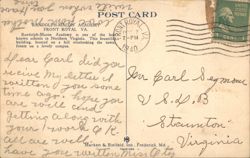 POST CARD
RANDOLPH-MACON ACADEMY
FRONT ROYAL, VA.
Randolph-Macon Academy is one of the best
known schools in Northern Virginia. This beautiful
building, located on a hill overlooking the town,
stands on a lovely campus.
1940
PM
Dear Carl did you
receive My letter I
written you some
time ago? Hope you
are well and
getting along with
your work O.K.
all are well
have you written Miss
Mr Carl Seymour
V. S. D. B
Staunton
Virginia
Marken & Bielfeld, Inc., Frederick, Md.